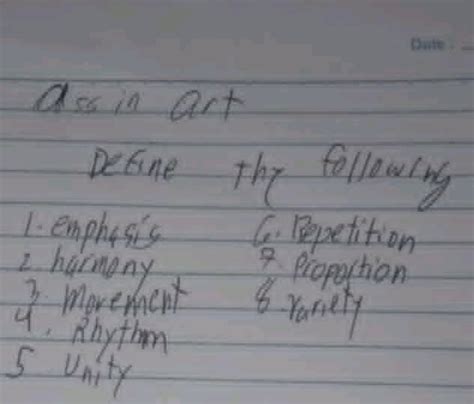 Date:
Ass in art
Define the following
1. emphasis
2 harmony
3. Movement
4. Rhythm
5 Unity
6. Repetition
7. Proportion
8. Variety